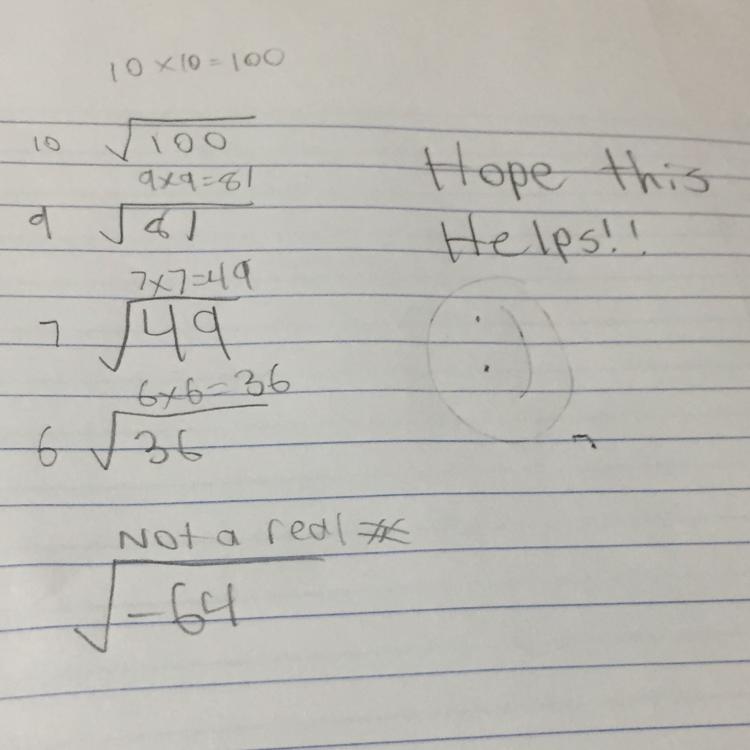 10 × 10 = 100
10 √100
9×9=81
9 √81
7×7=49
7 √49
6×6=36
6 √36
Not a real #
√-64
Hope this
Helps!!
:)